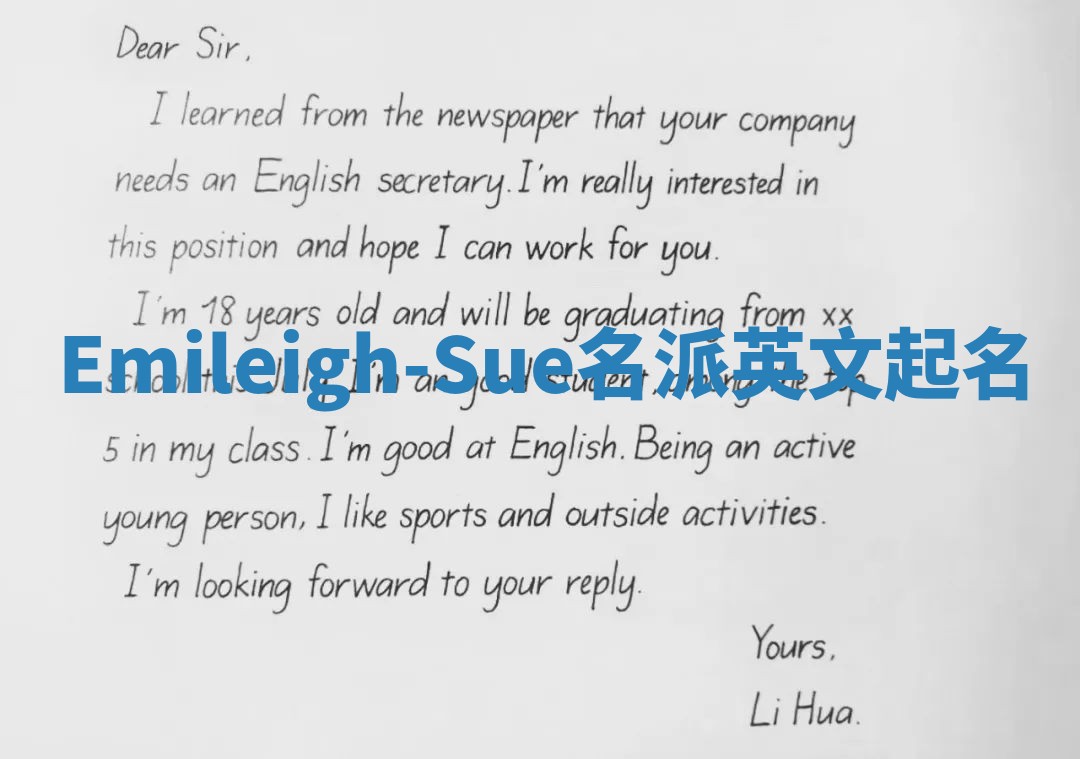 Dear Sir,
I learned from the newspaper that your company
needs an English secretary. I'm really interested in
this position and hope I can work for you.
I'm 18 years old and will be graduating from xx
Emileigh-Sue名派英文起名
school this July. I'm an good student, among the top
5 in my class. I'm good at English. Being an active
young person, I like sports and outside activities.
I'm looking forward to your reply.
Yours,
Li Hua.